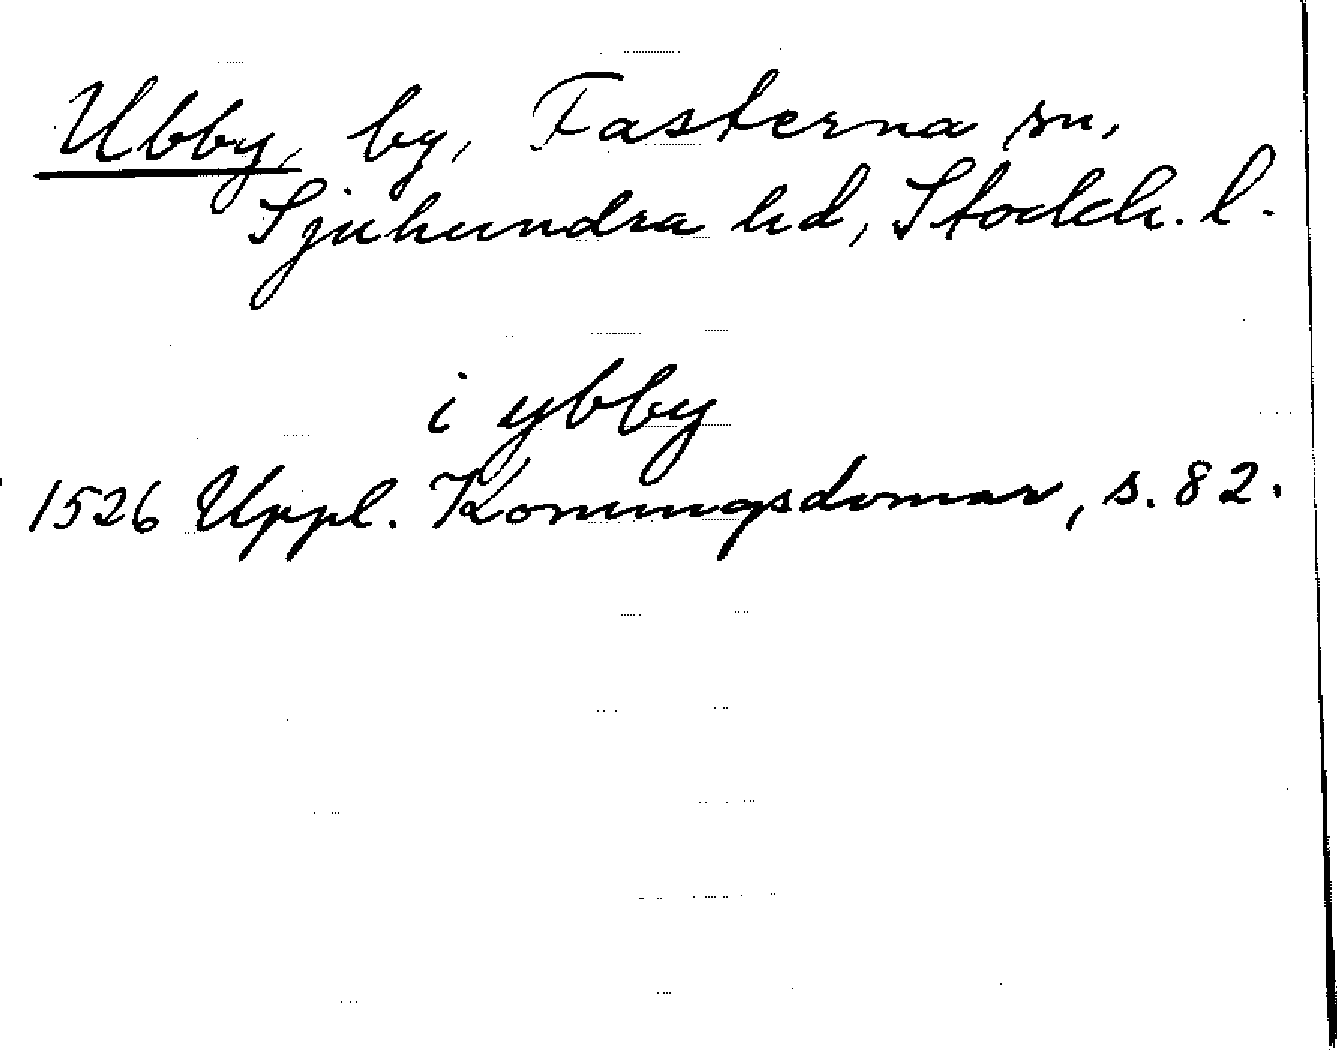 Ubby, by, Fasterna sn,
Sjuhundra hd, Stockh. l.
i ybby
1526 Uppl. Konungsdomar, s. 82.